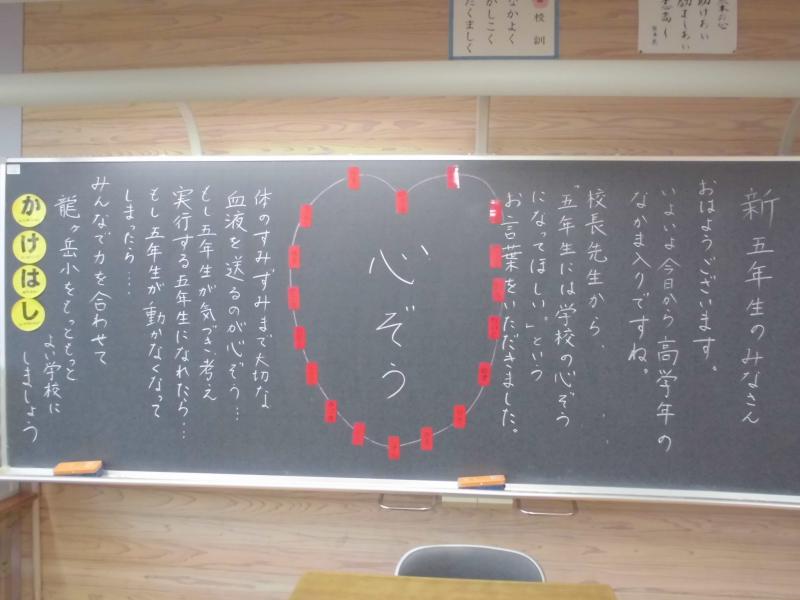 校訓
なかよく
かしこく
たくましく
助けあい
励ましあい
新五年生のみなさん
おはようございます。
いよいよ今日から高学年の
なかま入りですね。
校長先生から、
「五年生には学校の心ぞう
になってほしい。」という
お言葉をいただきました。
心ぞう
体のすみずみまで大切な
血液を送るのが心ぞう…
もし五年生が気づき、考え
実行する五年生になれたら…
もし五年生が動かなくなって
しまったら…
みんなで力を合わせて
龍ヶ岳小をもっともっと
よい学校に
しましょう
かけはし